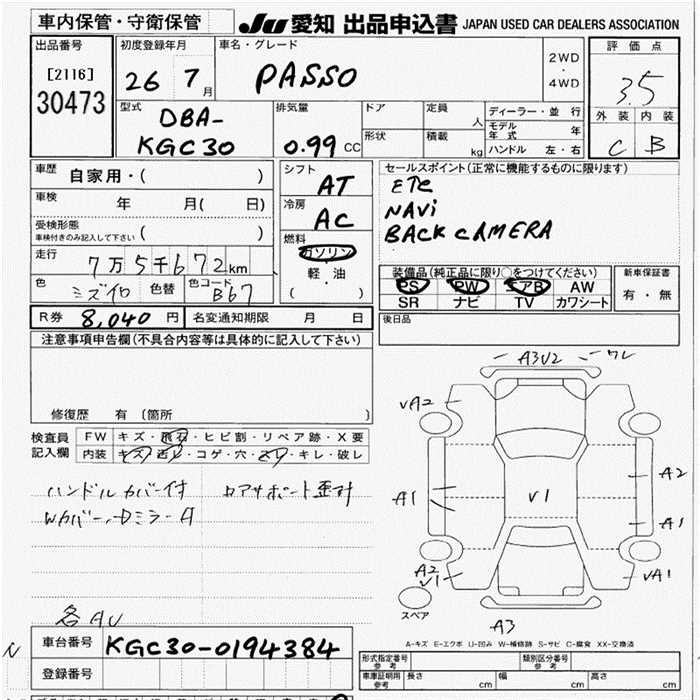 車内保管・守衛保管
JU 愛知 出品申込書 JAPAN USED CAR DEALERS ASSOCIATION
出品番号
[2116]
30473
初度登録年月
26 7月
車名・グレード
PASSO
2WD
・
4WD
評価点
3.5
外装 内装
C B
型式
DBA-
KGC30
排気量
0.99 CC
ドア
形状
定員
人
積載
kg
ディーラー・並行
モデル年式 年
ハンドル 左・右
車歴
自家用・( )
車検
年 月( 日)
受検形態
車検付きのみ記入して下さい ( )
走行
7万5千672km
色 色替 色コード
B67
シフト
AT
冷房
AC
燃料
ガソリン
・
軽・油
( )
セールスポイント(正常に機能するものに限ります)
ETC
NAVi
BACK CAMERA
装備品(純正品に限り○をつけてください)
PS PW エアB AW
SR ナビ TV カワシート
新車保証書
有・無
R券 8,040円 名変通知期限 月 日
後日品
注意事項申告欄(不具合内容等は具体的に記入して下さい)
修復歴 有〔箇所 〕
検査員記入欄
FW キズ・飛石・ヒビ割・リペア跡・X要
内装 キズ・汚レ・コゲ・穴・スレ・キレ・破レ
ハンドルカバー付
A3 U2 ワレ
A2
A1
V1
A2
A1
A2
V1
A1
A3
スペア
A-キズ E-エクボ U-凹み W-補修跡 S-サビ C-腐食 XX-交換済
車台番号 KGC30-0194384
登録番号
形式指定番号
参考
類別区分番号
参考
車庫証明用
参考
長さ cm 幅 cm 高さ cm